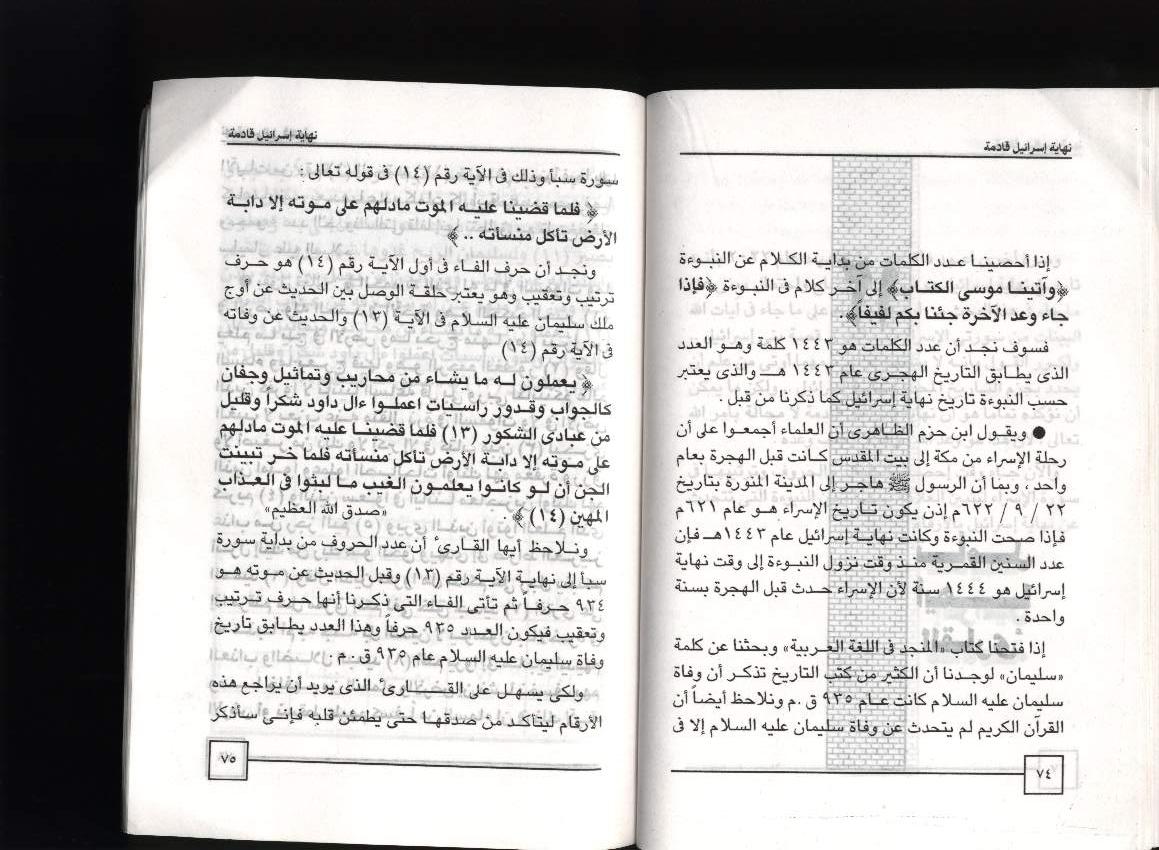 نهاية إسرائيل قادمة
إذا أحصينا عدد الكلمات من بداية الكلام عن النبوءة
﴿وآتينا موسى الكتاب﴾ إلى آخر كلام فى النبوءة ﴿فإذا
جاء وعد الآخرة جئنا بكم لفيفاً﴾.
فسوف نجد أن عدد الكلمات هو ١٤٤٣ كلمة وهو العدد
الذى يطابق التاريخ الهجرى عام ١٤٤٣ هـ والذى يعتبر
حسب النبوءة تاريخ نهاية إسرائيل كما ذكرنا من قبل .
● ويقول ابن حزم الظاهرى أن العلماء أجمعوا على أن
رحلة الإسراء من مكة إلى بيت المقدس كانت قبل الهجرة بعام
واحد ، وبما أن الرسول ﷺ هاجر إلى المدينة المنورة بتاريخ
٢٢ / ٩ / ٦٢٢م إذن يكون تاريخ الإسراء هو عام ٦٢١م
فإذا صحت النبوءة وكانت نهاية إسرائيل عام ١٤٤٣هـ فإن
عدد السنين القمرية منذ وقت نزول النبوءة إلى وقت نهاية
إسرائيل هو ١٤٤٤ سنة لأن الإسراء حدث قبل الهجرة بسنة
واحدة .
إذا فتحنا كتاب «المنجد فى اللغة العربية» وبحثنا عن كلمة
«سليمان» لوجدنا أن الكثير من كتب التاريخ تذكر أن وفاة
سليمان عليه السلام كانت عام ٩٣٥ ق.م ونلاحظ أيضاً أن
القرآن الكريم لم يتحدث عن وفاة سليمان عليه السلام إلا فى
٧٤
نهاية إسرائيل قادمة
سورة سبأ وذلك فى الآية رقم (١٤) فى قوله تعالى :
﴿ فلما قضينا عليه الموت مادلهم على موته إلا دابة
الأرض تأكل منسأته .. ﴾
ونجد أن حرف الفاء فى أول الآية رقم (١٤) هو حرف
ترتيب وتعقيب وهو يعتبر حلقة الوصل بين الحديث عن أوج
ملك سليمان عليه السلام فى الآية (١٣) والحديث عن وفاته
فى الآية رقم (١٤)
﴿ يعملون له ما يشاء من محاريب وتماثيل وجفان
كالجواب وقدور راسيات اعملوا ءال داود شكرا وقليل
من عبادى الشكور (١٣) فلما قضينا عليه الموت مادلهم
على موته إلا دابة الأرض تأكل منسأته فلما خر تبينت
الجن أن لو كانوا يعلمون الغيب ما لبثوا فى العذاب
المهين (١٤) ﴾ . «صدق الله العظيم»
ونلاحظ أيها القارئ أن عدد الحروف من بداية سورة
سبأ إلى نهاية الآية رقم (١٣) وقبل الحديث عن موته هو
٩٣٤ حرفاً ثم تأتى الفاء التى ذكرنا أنها حرف ترتيب
وتعقيب فيكون العدد ٩٣٥ حرفاً وهذا العدد يطابق تاريخ
وفاة سليمان عليه السلام عام ٩٣٥ ق . م .
ولكى يسهل على القارئ الذى يريد أن يراجع هذه
الأرقام ليتأكد من صدقها حتى يطمئن قلبه فإنى سأذكر
٧٥